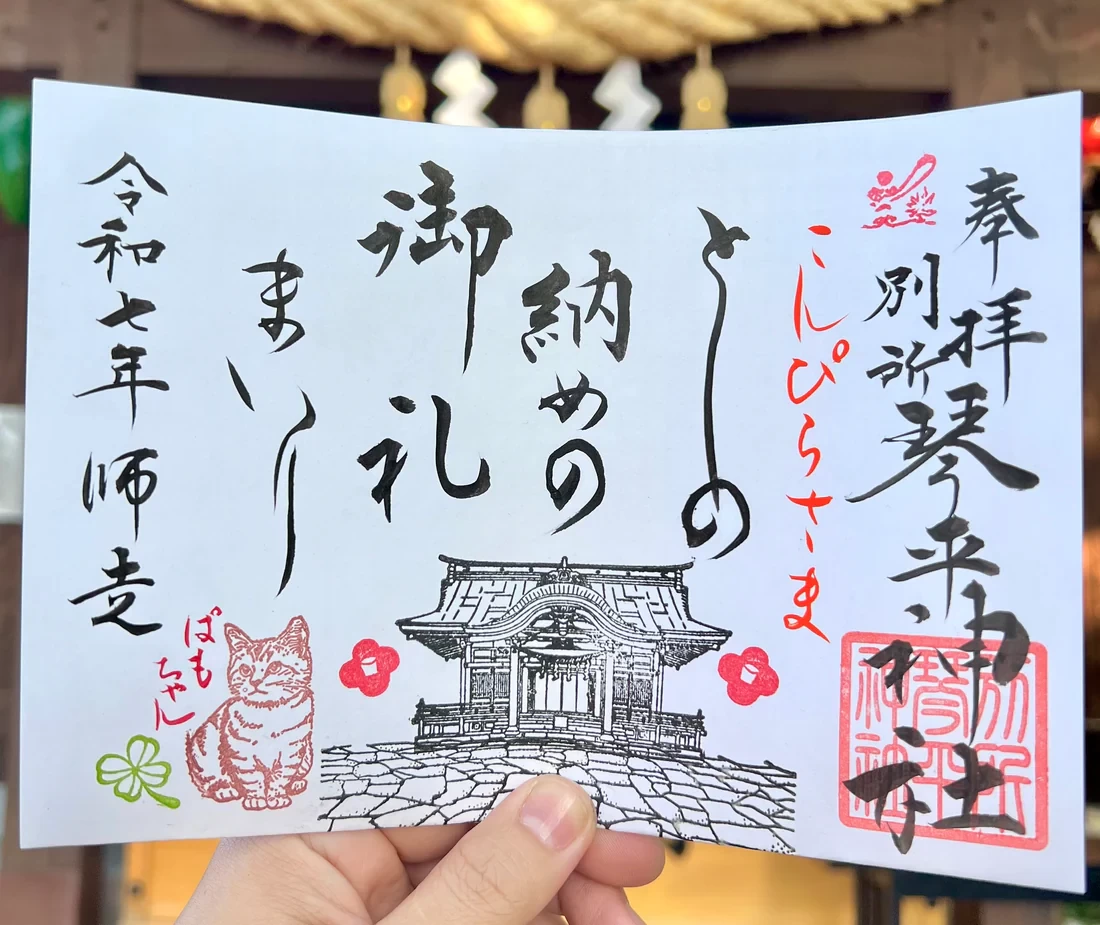 奉拝
別所琴平神社
こんぴらさま
としの
納めの
御礼
まいり
令和七年師走
ぱもちゃん
別所
琴平
神社